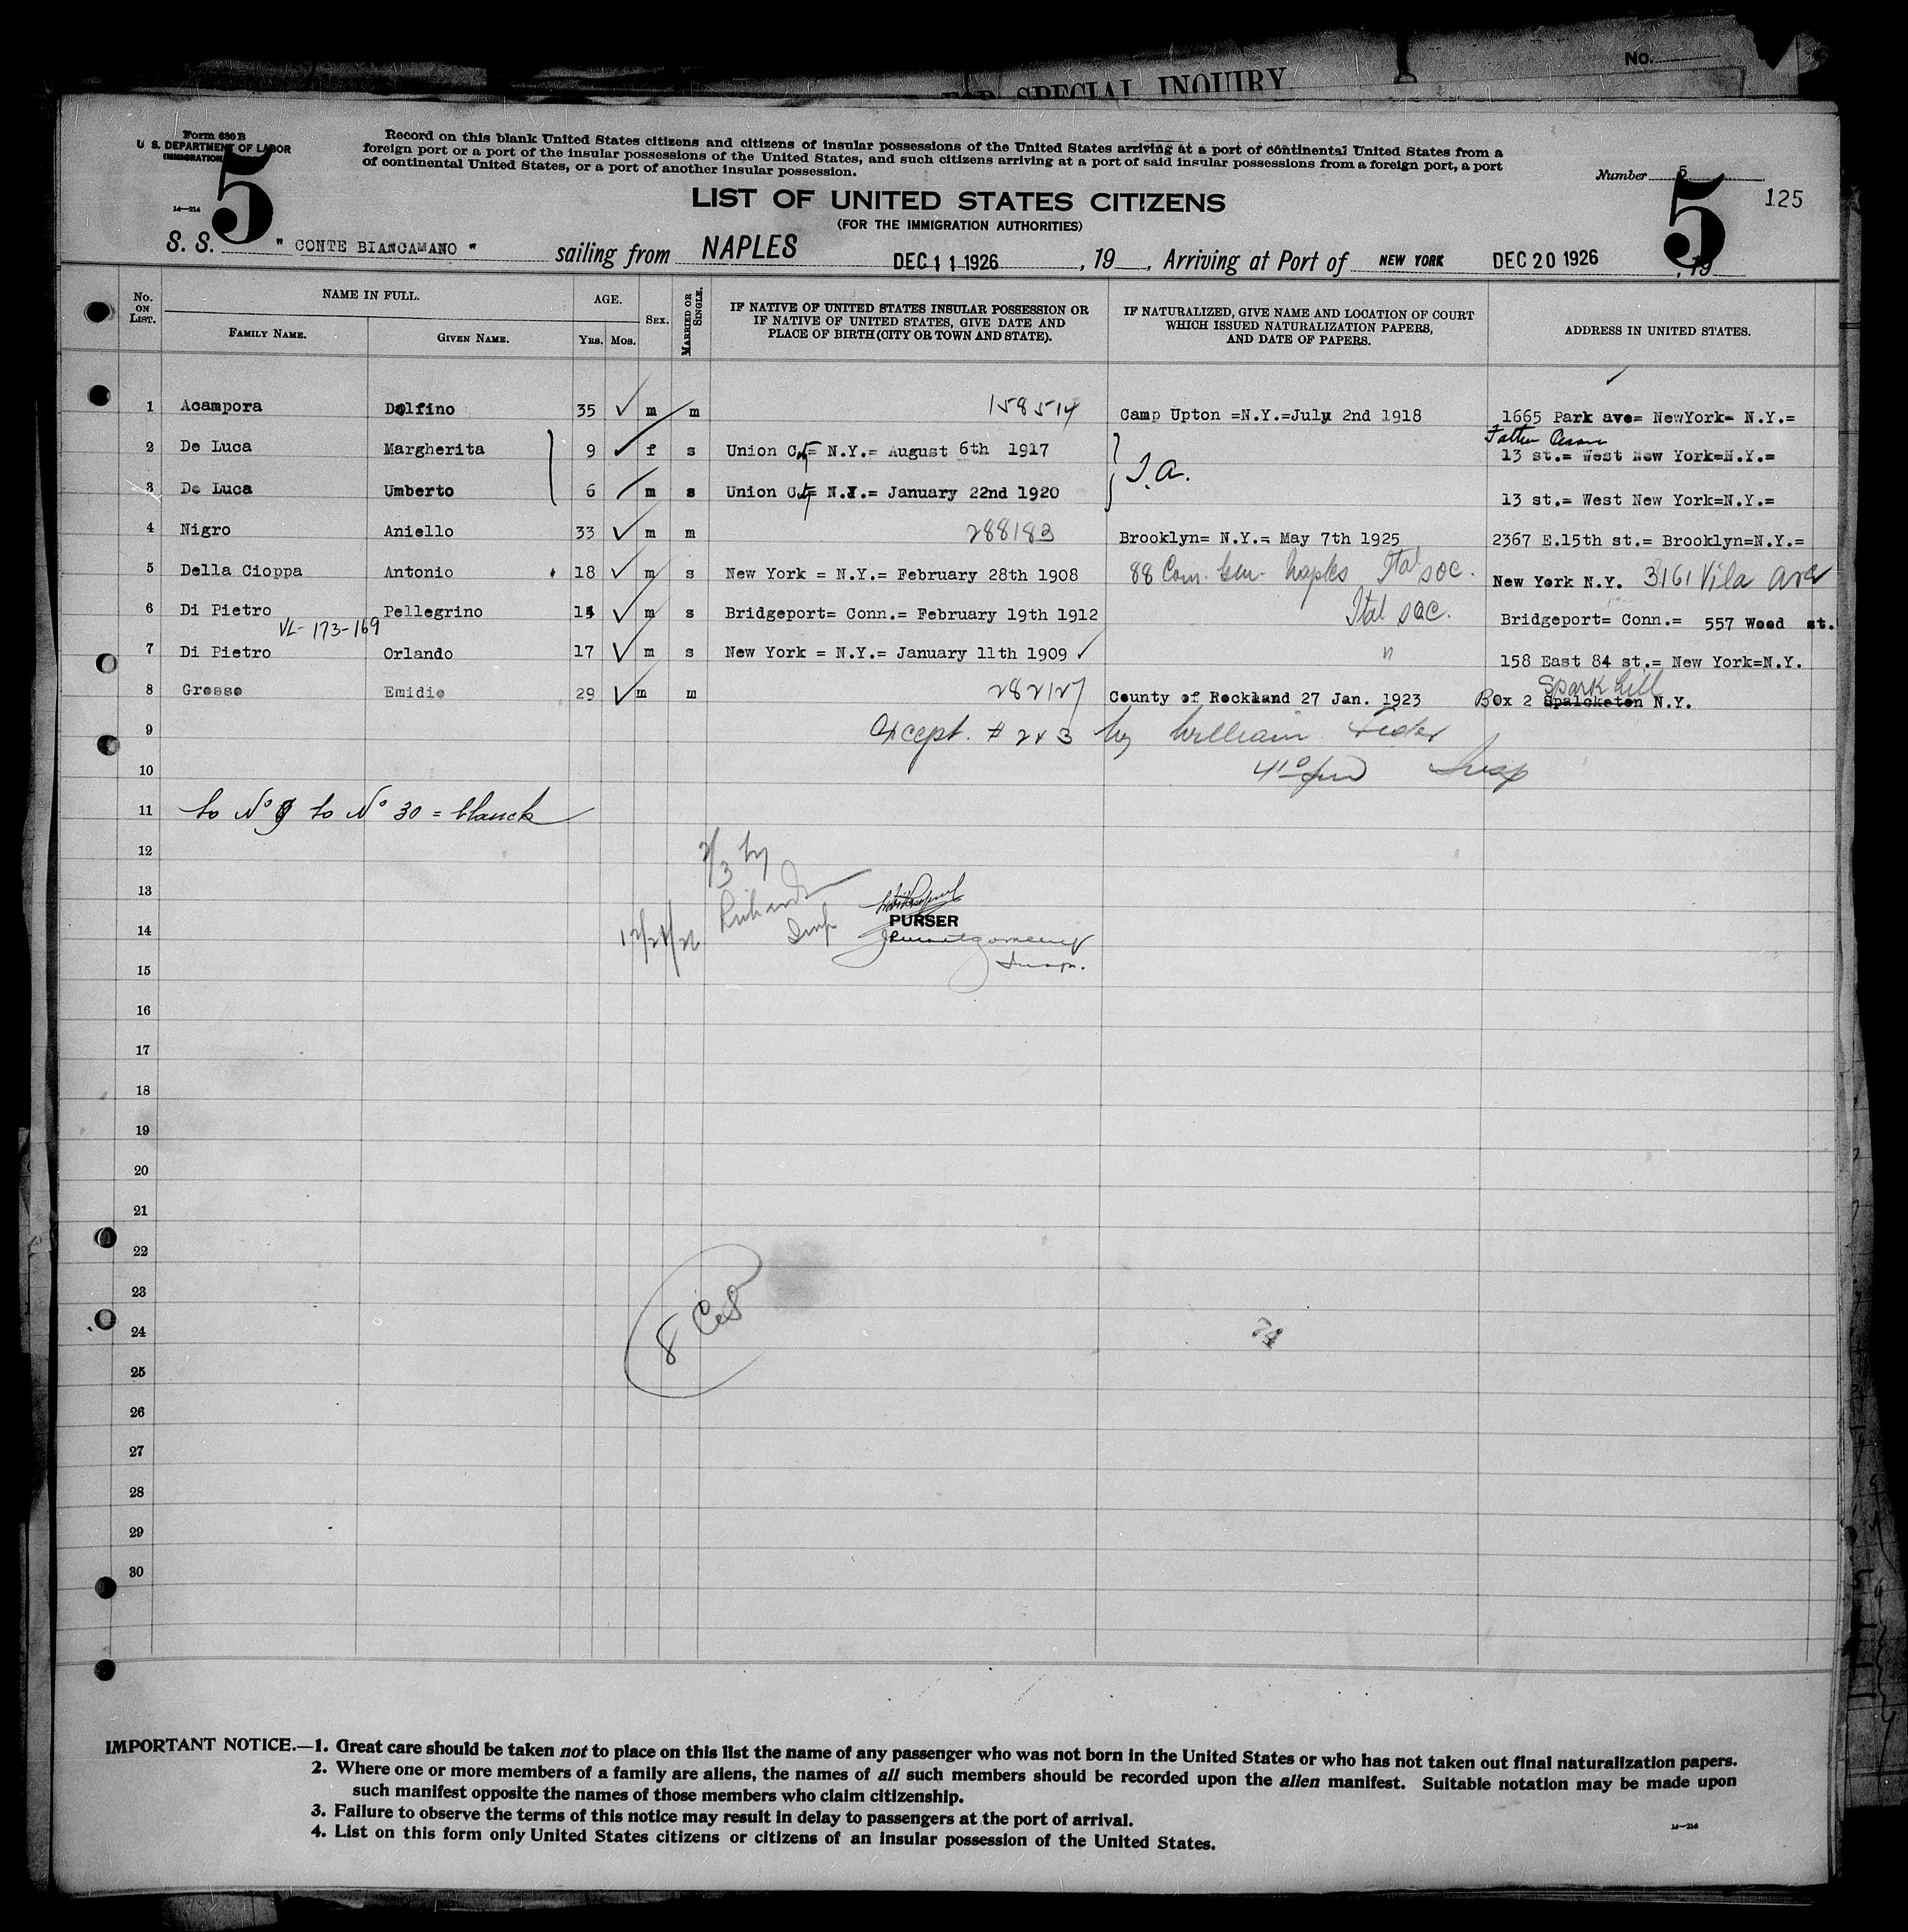 No.
FOR SPECIAL INQUIRY.
Form 630 B
U. S. DEPARTMENT OF LABOR
IMMIGRATION
14—214
5
Record on this blank United States citizens and citizens of insular possessions of the United States arriving at a port of continental United States from a
foreign port or a port of the insular possessions of the United States, and such citizens arriving at a port of said insular possessions from a foreign port, a port
of continental United States, or a port of another insular possession.
Number 5
5
125
LIST OF UNITED STATES CITIZENS
(FOR THE IMMIGRATION AUTHORITIES)
S. S. " CONTE BIANCAMANO " sailing from NAPLES DEC 11 1926, 19, Arriving at Port of NEW YORK DEC 20 1926, 19
No. ON LIST.
NAME IN FULL.
FAMILY NAME.
GIVEN NAME.
AGE.
YRS. MOS.
SEX.
MARRIED OR SINGLE.
IF NATIVE OF UNITED STATES INSULAR POSSESSION OR
IF NATIVE OF UNITED STATES, GIVE DATE AND
PLACE OF BIRTH (CITY OR TOWN AND STATE).
IF NATURALIZED, GIVE NAME AND LOCATION OF COURT
WHICH ISSUED NATURALIZATION PAPERS,
AND DATE OF PAPERS.
ADDRESS IN UNITED STATES.
1 Acampora Dolfino 35 m m 158514 Camp Upton =N.Y.=July 2nd 1918 1665 Park ave= NewYork= N.Y.=
Father
2 De Luca Margherita 9 f s Union City= N.Y.= August 6th 1917 13 st.= West New York=N.Y.=
3 De Luca Umberto 6 m s Union City= N.J.= January 22nd 1920 13 st.= West New York=N.Y.=
4 Nigro Aniello 33 m m 288183 Brooklyn= N.Y.= May 7th 1925 2367 E.15th st.= Brooklyn=N.Y.=
5 Della Cioppa Antonio 18 m s New York = N.Y.= February 28th 1908 88 Con. Gen. Naples Ital soc. New York N.Y. 3161 Vila Ave
6 Di Pietro Pellegrino 14 m s Bridgeport= Conn.= February 19th 1912 Ital soc. Bridgeport= Conn.= 557 Wood st.
VL-173-169
7 Di Pietro Orlando 17 m s New York = N.Y.= January 11th 1909 ✓ " 158 East 84 st.= New York=N.Y.
Sparkhill
8 Grosso Emidio 29 m m 282127 County of Rockland 27 Jan. 1923 Box 2 Spalcketon N.Y.
9 Except. # 2 & 3 by William
10 Insp
11 to N° 9 to N° 30 = blanck
12
2/3 by
13
Richards
PURSER
14
12/21/26 Insp
Insp.
15
16
17
18
19
20
21
22
23
8 Ces
24
25
26
27
28
29
30
IMPORTANT NOTICE.—1. Great care should be taken not to place on this list the name of any passenger who was not born in the United States or who has not taken out final naturalization papers.
2. Where one or more members of a family are aliens, the names of all such members should be recorded upon the alien manifest. Suitable notation may be made upon
such manifest opposite the names of those members who claim citizenship.
3. Failure to observe the terms of this notice may result in delay to passengers at the port of arrival.
4. List on this form only United States citizens or citizens of an insular possession of the United States.
14—214